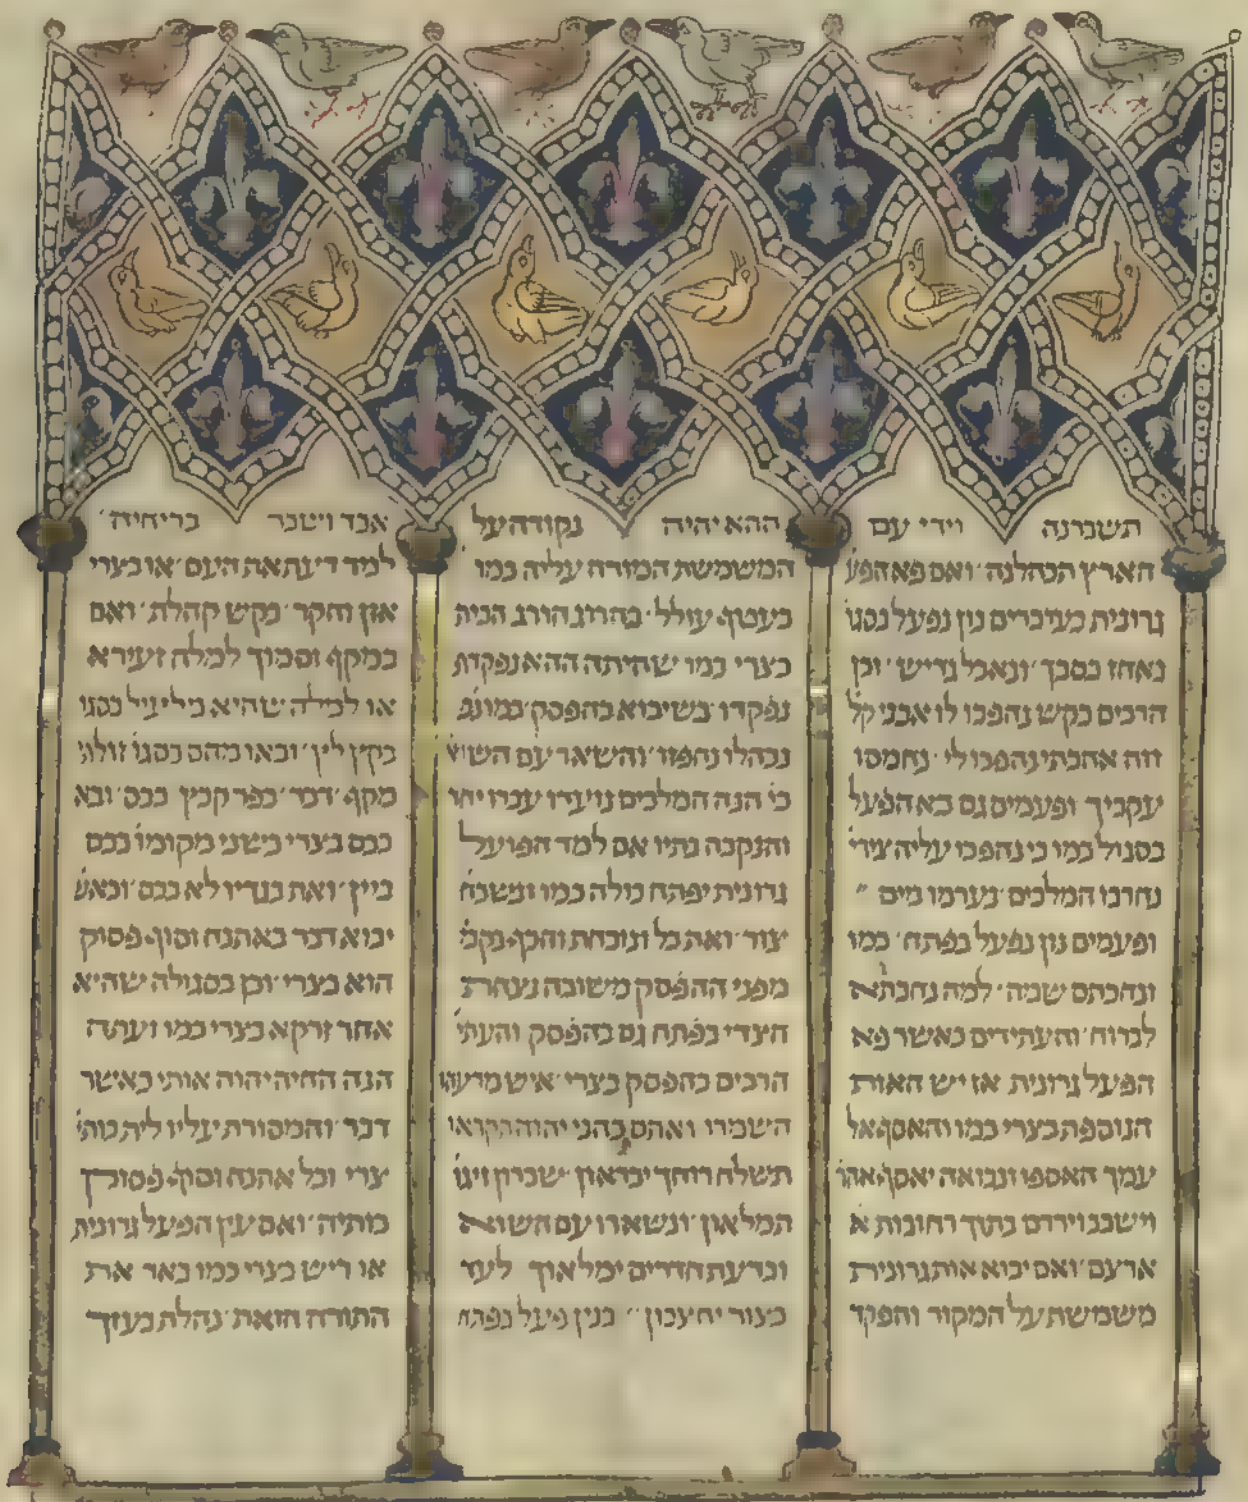 תשברנה וידי עם
הארץ תבהלנה ואם פא הפע
גרונית כעיברים נון נפעל בסגו
נאחז בסבך ונאכל גדיש וכן
הרבים בקש נהפכו לו אבני קל
וזה אהבתי נהפכו לי נחמסו
עקביך ופעמים גם בא הפעל
בסגול כמו כי נהפכו עליה צירי
נחרבו המלכים נערמו מים
ופעמים נון נפעל בפתח כמו
ונחבתם שמה למה נחבתא
לברוח והעתידים כאשר פא
הפעל גרונית אז יש האות
הנוספת בצרי כמו והאסף אל
עמך האספו ונבואה יאסף אהר
וישבב וירדם בתוך רחובות א
ארעם ואם יבוא אות גרונית
משמשת על המקור והפקוד
ההא יהיה נקודה על
המשמשת המורה עליה כמו
בעטוף עולל בהרוג הורג הבית
בצרי כמו שהיתה ההא נפקדת
נפקדו כשיבוא בהפסק כמו נב
נבהלו נחפזו והשאר עם השוא
כי הנה המלכים נועדו עברו יחד
והנקבה בתיו אם למד הפועל
גרונית יפתח כולה כמו ונשכח
צור ואת כל ונוכחת והכף נקמ
מפני ההפסק משובה נצחת
הצדי בפתח גם בהפסק והעתי
הרבים בהפסק בצרי איש מרעהו
השמרו ואתם בהני יהוה תקראו
תשלח רוחך יבראון שברון ויגו
תמלאון ונשארו עם השוא
ובדעת חדרים ימלאון לעד
בצור יחצבון בנין פיעל נפתח
אבד ושבר בריחיה
למד דעת את העם או בצרי
אזן וחקר בקש קהלת ואם
במקף וסמוך למלה זעירא
או למלה שהיא מלעיל בסגו
בקץ לץ ובאו מהם בסגו זולתי
מקף דבר כפר קבץ כבס ובא
כבס בצרי בשני מקומו כבס
ביין ואת בגדיו לא כבס ובאש
יבוא דבר באתנח וסוף פסוק
הוא בצרי וכן בסגולה שהיא
אחר זרקא בצרי כמו ועתה
הנה החיה יהוה אותי כאשר
דבר והמסורת עליו לית כותי
צרי וכל אתנח וסוף פסוק דכ
כותיה ואם עין הפעל גרונית
או ריש בצרי כמו באר את
התורה הזאת נהלת בעזך